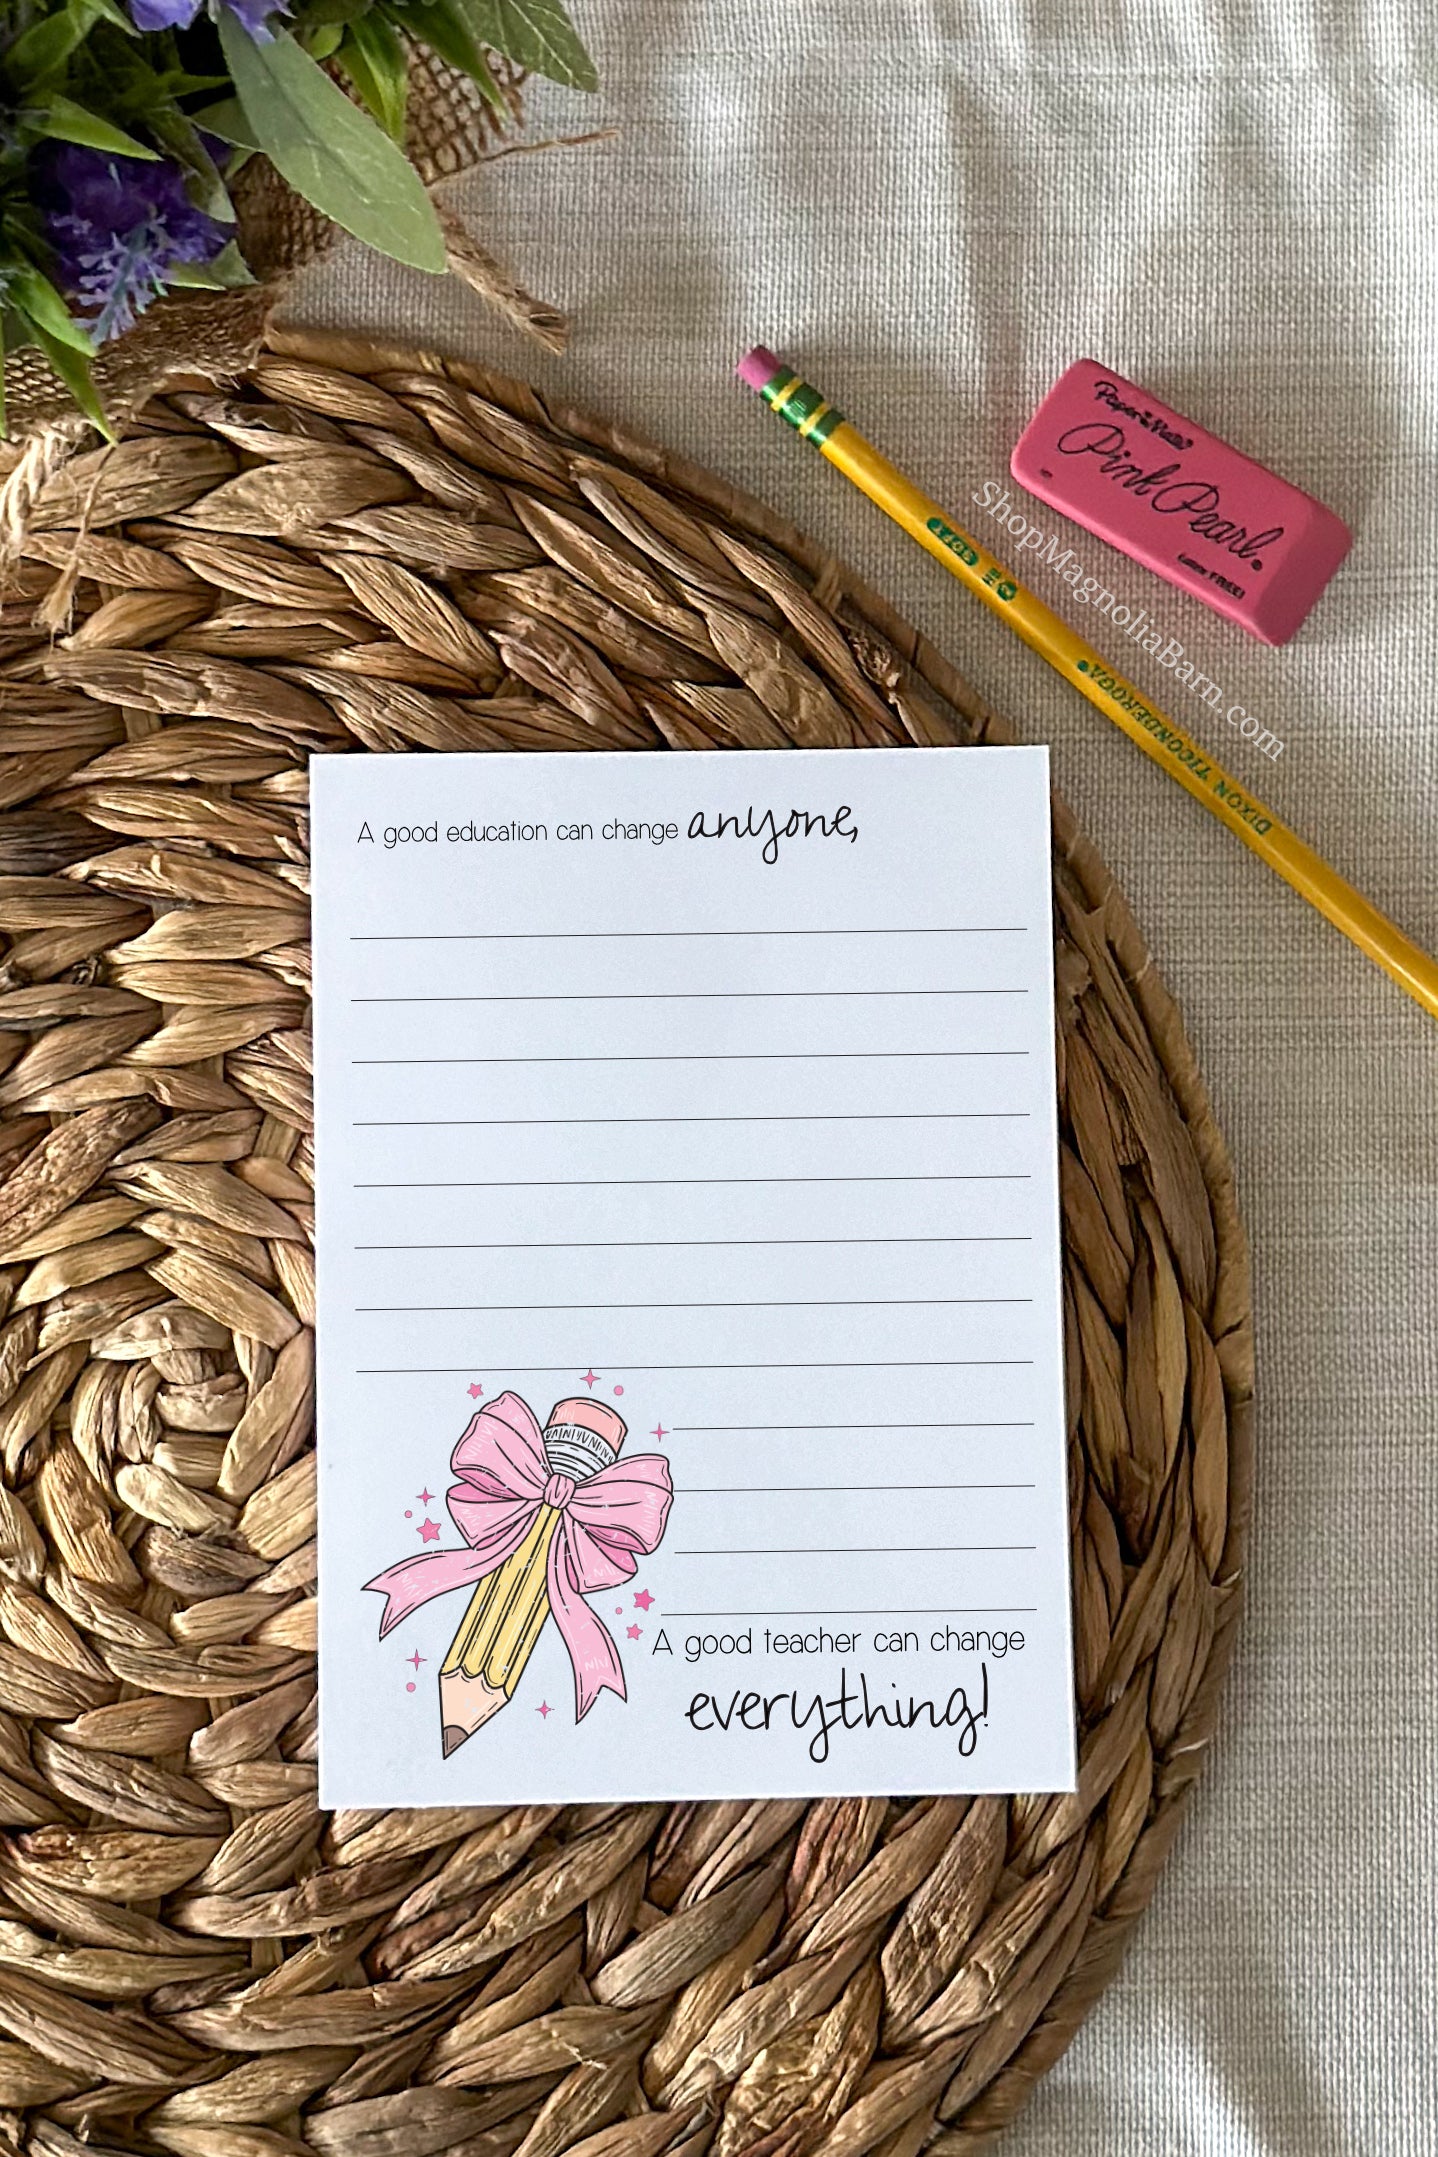 Paper Mate
Pink Pearl
Latex FREE!
ShopMagnoliaBarn.com
DIXON TICONDEROGA
A good education can change anyone,
A good teacher can change
everything!